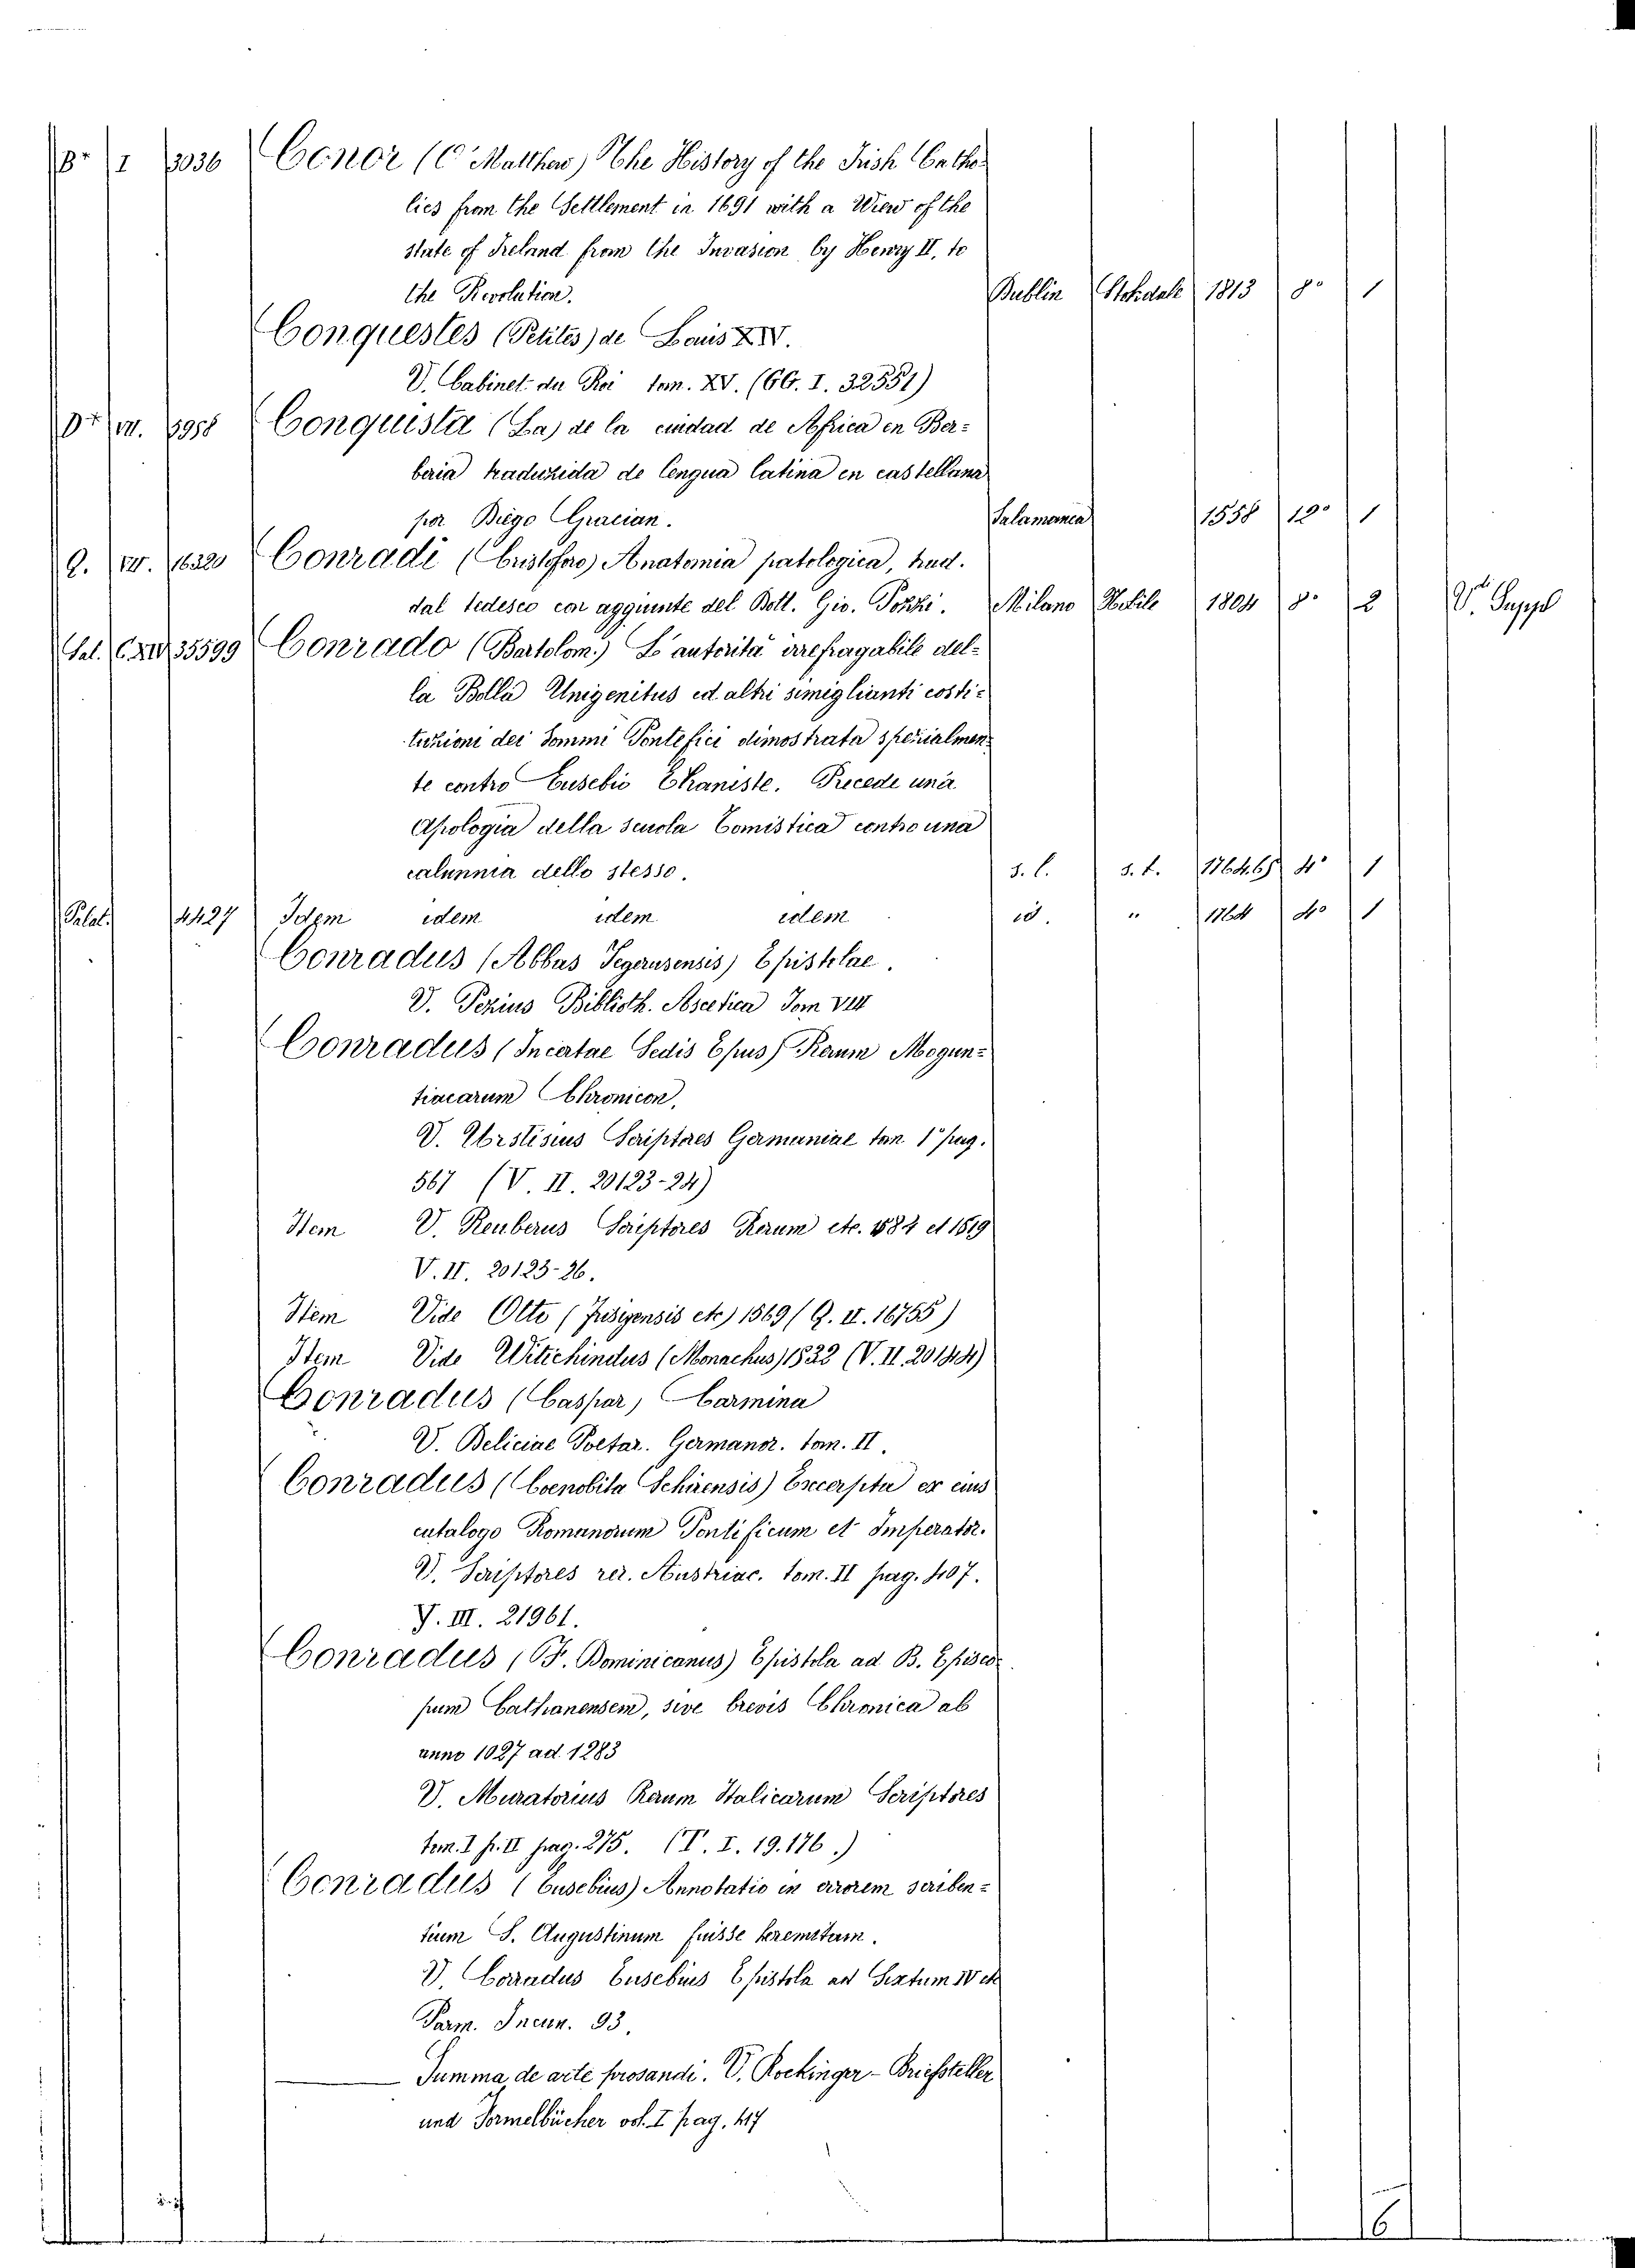 B* I 3036 Conor (O' Matthew) The History of the Irish Catho-
lics from the Settlement in 1691 with a Wiew of the
state of Ireland from the Invasion by Henry II, to
the Revolution. Dublin Stokdale 1813 8° 1
Conquestes (Petites) de Louis XIV.
V. Cabinet du Roi tom. XV. (GG. I. 32551)
D* VII. 3958 Conquista (La) de la ciudad de Africa en Ber-
beria traduzida de lengua latina en castellana
por Diego Gracian. Salamanca 1558 12° 1
Q. IV. 16320 Conradi (Cristoforo) Anatomia patologica, trad.
dal tedesco con aggiunte del Dott. Gio. Pozzi. Milano Nobile 1804 8° 2 V. Suppl
Sal. CXIV 35599 Conrado (Bartolom.) L'autorità irrefragabile del-
la Bolla Unigenitus ed altri simiglianti costi-
tuzioni dei Sommi Pontefici dimostrata spezialmen-
te contro Eusebio Eraniste. Precede una
Apologia della scuola Tomistica contro una
calunnia dello stesso. s. l. s. t. 1764.65 4° 1
Palat. 4427 Idem idem idem idem id. " 1764 4° 1
Conradus (Abbas Tegernsensis) Epistolae.
V. Pezius Biblioth. Ascetica Tom VIII
Conradus (Incertae Sedis Epus) Rerum Mogun-
tiacarum Chronicon.
V. Urstisius Scriptores Germaniae tom 1° pag.
567 (V. II. 20123-24)
Item V. Reuberus Scriptores Rerum etc. 1584 et 1619
V. II. 20125-26.
Item Vide Otto (Frisigensis etc) 1569 (Q. II. 16755)
Item Vide Witichindus (Monachus) 1532 (V. II. 20144)
Conradus (Caspar) Carmina
V. Deliciae Poetar. Germanor. tom. II.
Conradus (Coenobita Schirensis) Excerpta ex eius
catalogo Romanorum Pontificum et Imperator.
V. Scriptores rer. Austriac. tom. II pag. 407.
Y. III. 21961.
Conradus (F. Dominicanus) Epistola ad B. Episco-
pum Cathanensem, sive brevis Chronica ab
anno 1027 ad 1283
V. Muratorius Rerum Italicarum Scriptores
tom. I p. II pag. 275. (T. I. 19.176.)
Conradus (Eusebius) Annotatio in errorem scriben-
tium S. Augustinum fuisse heremitam.
V. Corradus Eusebius Epistola ad Sextum IV etc
Parm. Incun. 93.
Summa de arte prosandi. V. Rockinger - Briefsteller
und Formelbücher vol. I pag. 417
6